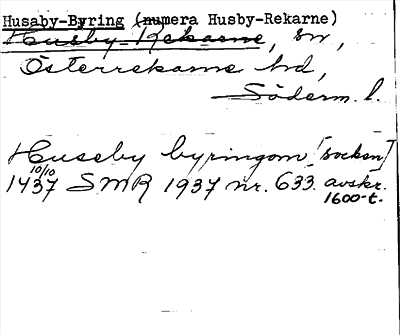 Husaby-Byring (numera Husby-Rekarne)
Husby-Rekarne, sn,
Österrekarne hd,
Söderm. l.
Huseby byringom [socken]
10/10
1437 SMR 1937 nr. 633. avskr.
1600-t.